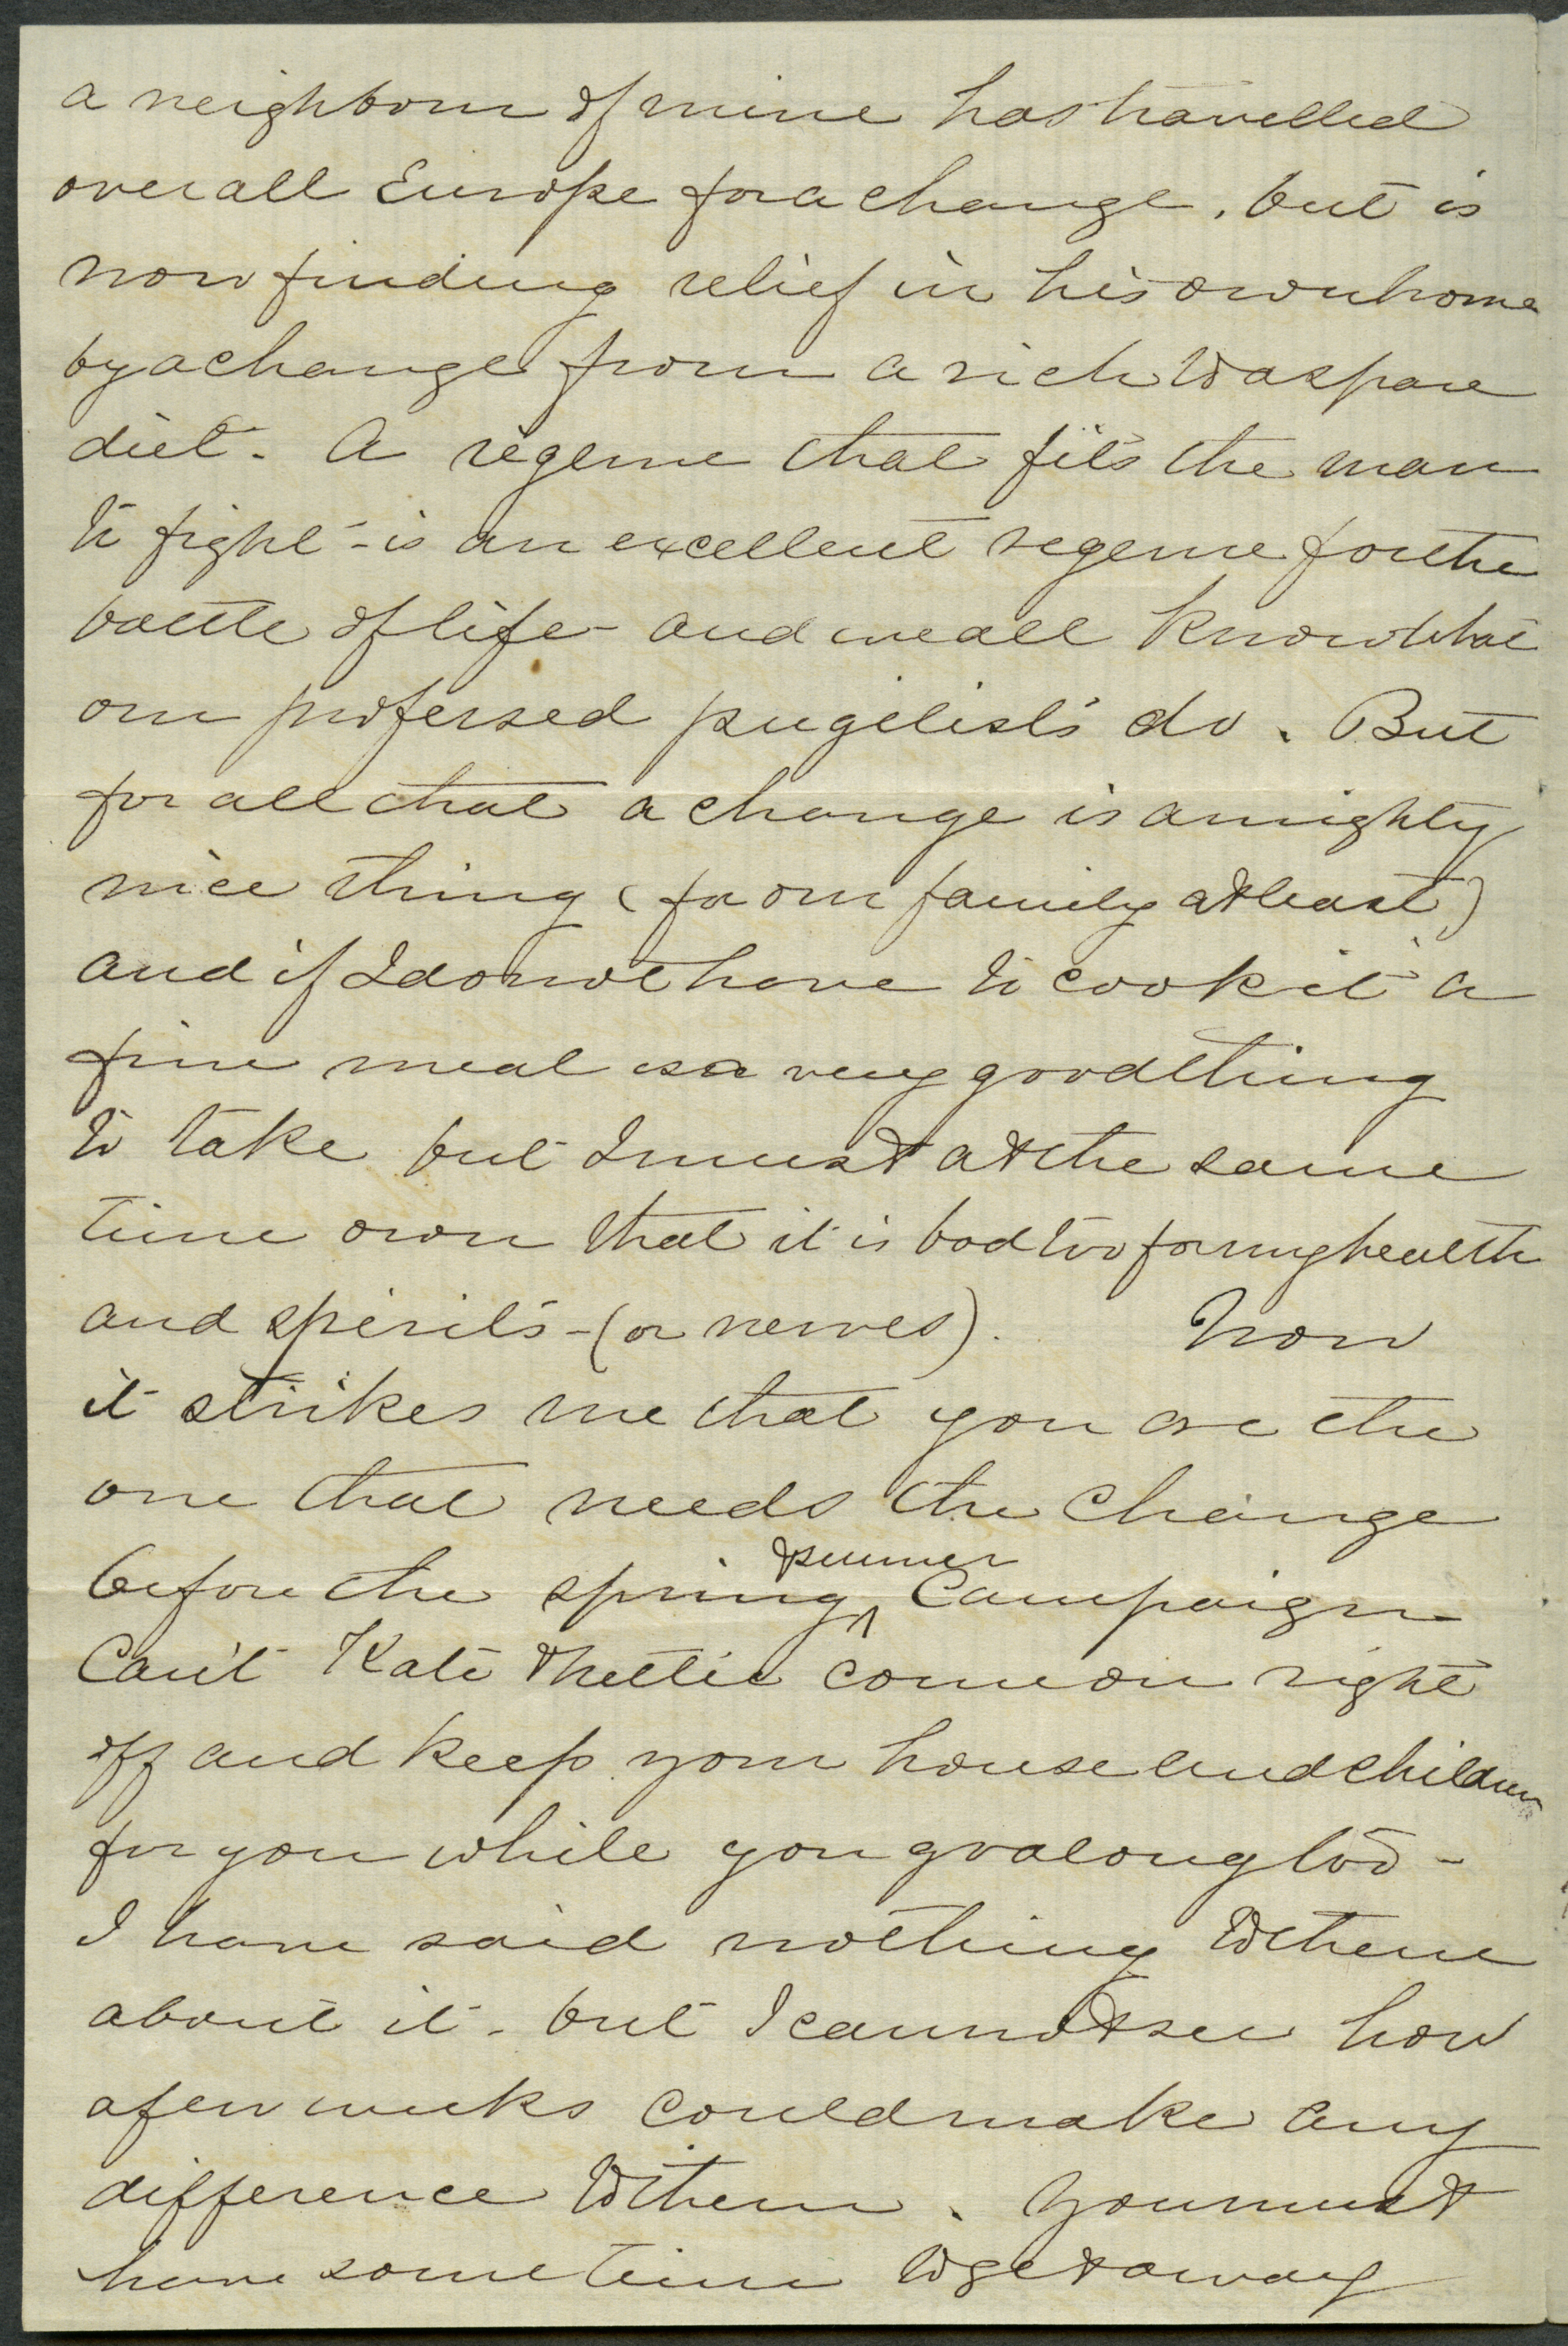 a neighbour of mine has travelled
over all Europe for a change, but is
now finding relief in his own home
by a change from a rich to a spare
diet. A regeme that fits the man
to fight - is an excellent regeme for the
battle of life - and we all know what
our professed pugilists do. But
for all that a change is a mighty
nice thing (for our family at least)
and if I do not have to cook it a
fine meal is a very good thing
to take but I must at the same
time own that it is bad too for my health
and spirits - (or nerves). Now
it strikes me that you are the
one that needs the change
before the spring & summer Campaign
Can't Kate & Nettie come on right
off and keep your house and children
for you while you go along too -
I have said nothing to them
about it - but I cannot see how
a few weeks could make any
difference to them. You must
have some time to get away